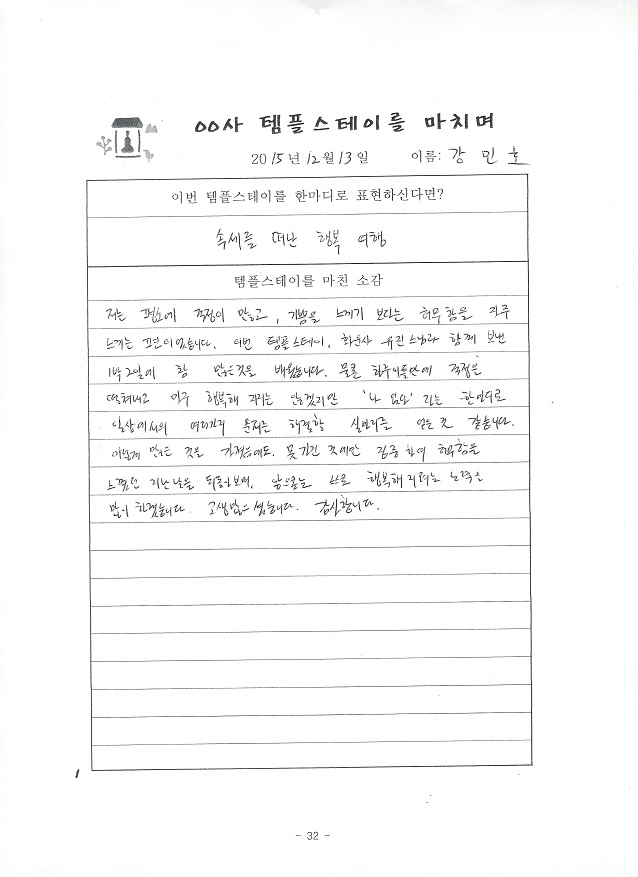 00사 템플스테이를 마치며
2015년 12월 13일 이름: 강 민 호
이번 템플스테이를 한마디로 표현하신다면?
속세를 떠난 행복 여행
템플스테이를 마친 소감
저는 평소에 걱정이 많고, 기쁨을 느끼기 보다는 허무함을 자주
느끼는 편이었습니다. 이번 템플스테이, 화운사 유진스님과 함께 보낸
1박 2일에 참 많은것을 배웠습니다. 물론 하루이틀만에 걱정을
떨쳐내고 아주 행복해 지지는 않겠지만 '나 없다' 라는 한마디로
일상에서의 여러가지 문제를 해결할 실마리를 얻은 것 같습니다.
이렇게 많은 것을 가졌는데도, 못가진 것에만 집중하여 허무함을
느꼈던 지난날을 뒤돌아보며, 앞으로는 스스로 행복해지려는 노력을
많이 하겠습니다. 고생많으셨습니다. 감사합니다.
- 32 -